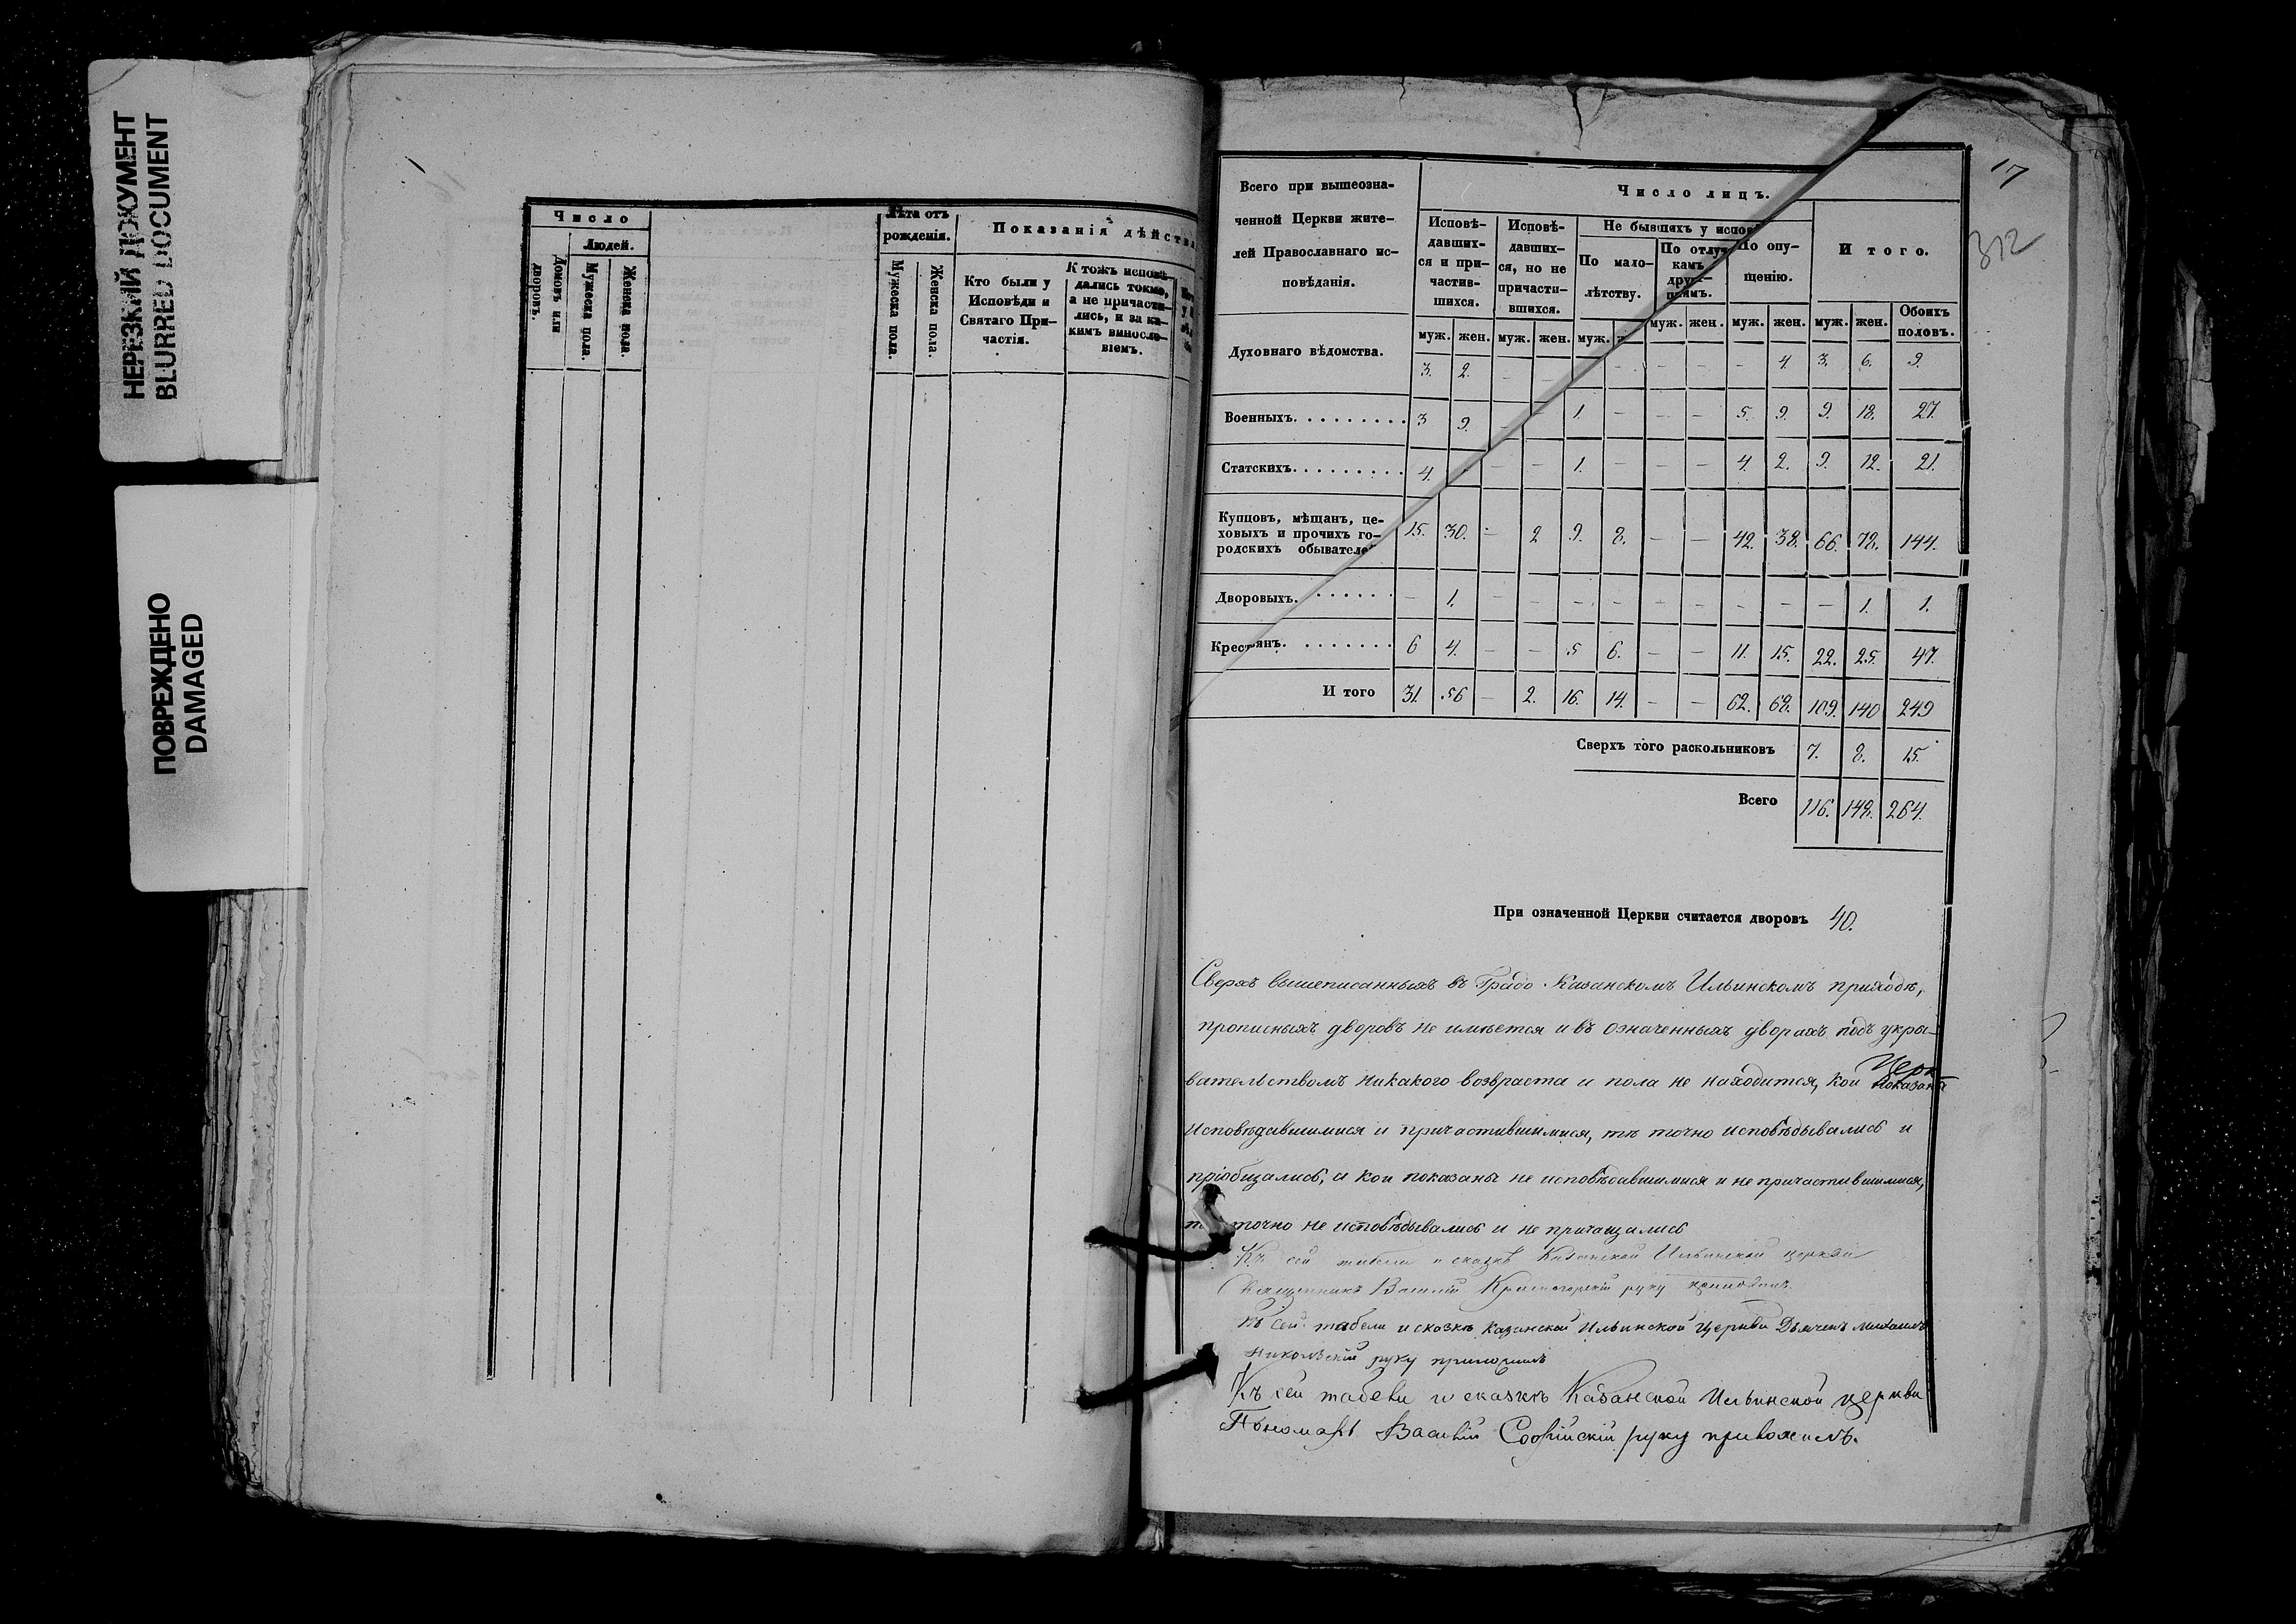 НЕРЕЗКИЙ ДОКУМЕНТ
BLURRED DOCUMENT
ПОВРЕЖДЕНО
DAMAGED
Число
Людей.
Домовъ или дворовъ.
Мужеска пола.
Женска пола.
Лѣта отъ рожденія.
Мужеска пола.
Женска пола.
Показанія дѣйств
Кто были у
Исповѣди и
Святаго При-
частія.
К тожъ исповѣ-
дались токмо,
а не причасти-
лись, и за ка-
кимъ виносло-
віемъ.
17
312
Всего при вышеозна-
ченной Церкви жите-
лей Православнаго ис-
повѣданія.
Число лицъ.
Исповѣ-
давших-
ся и при-
частив-
шихся.
Исповѣ-
давших-
ся, но не
причасти-
вшихся.
Не бывшихъ у испов
По мало-
лѣтству.
По отлуч
камъ
По опу-
щенію.
Итого.
муж. жен. муж. жен. муж. муж. жен. муж. жен. муж. жен. Обоихъ половъ.
Духовнаго вѣдомства. 3. 2. – – – – – – 4. 3. 6. 9.
Военныхъ. 3 9. – – 1. – – – 5. 9. 9. 18. 27.
Статскихъ. 4. – – 1. – – – 4. 2. 9. 12. 21.
Купцовъ, мѣщанъ, це-
ховыхъ и прочихъ го-
родскихъ обывателей 15. 30. – 2 9. 8. – – 42. 38. 66. 78. 144.
Дворовыхъ. – 1. – – – – – – – – – 1. 1.
Крестьянъ. 6 4. – – 5 6. – – 11. 15. 22. 25. 47.
И того 31. 56 – 2. 16. 14. – – 62. 68. 109. 140 249
Сверхъ того раскольниковъ 7. 8. 15.
Всего 116. 148. 264.
При означенной Церкви считается дворовъ 40.
Сверхъ вышеписанныхъ въ Градо-Казанскомъ Ильинскомъ приходѣ,
прописныхъ дворовъ не имѣется и въ означенныхъ дворахъ подъ укры-
вательствомъ никакого возвраста и пола не находится, кои показаны
исповѣдавшимися и причастившимися, тѣ точно исповѣдывались и
пріобщались, а кои показаны не исповѣдавшимися и не причастившимися,
точно не исповѣдывались и не причащались
Къ сей табели и сказкѣ Казанской Ильинской церкви
Священникъ Василій руку приложилъ
Къ сей табели и сказкѣ Казанской Ильинской Церкви Дьячекъ Михаилъ
Никольскій руку приложилъ
Къ сей табели и сказкѣ Казанской Ильинской церкви
Пономарь Василій Софійскій руку приложилъ.